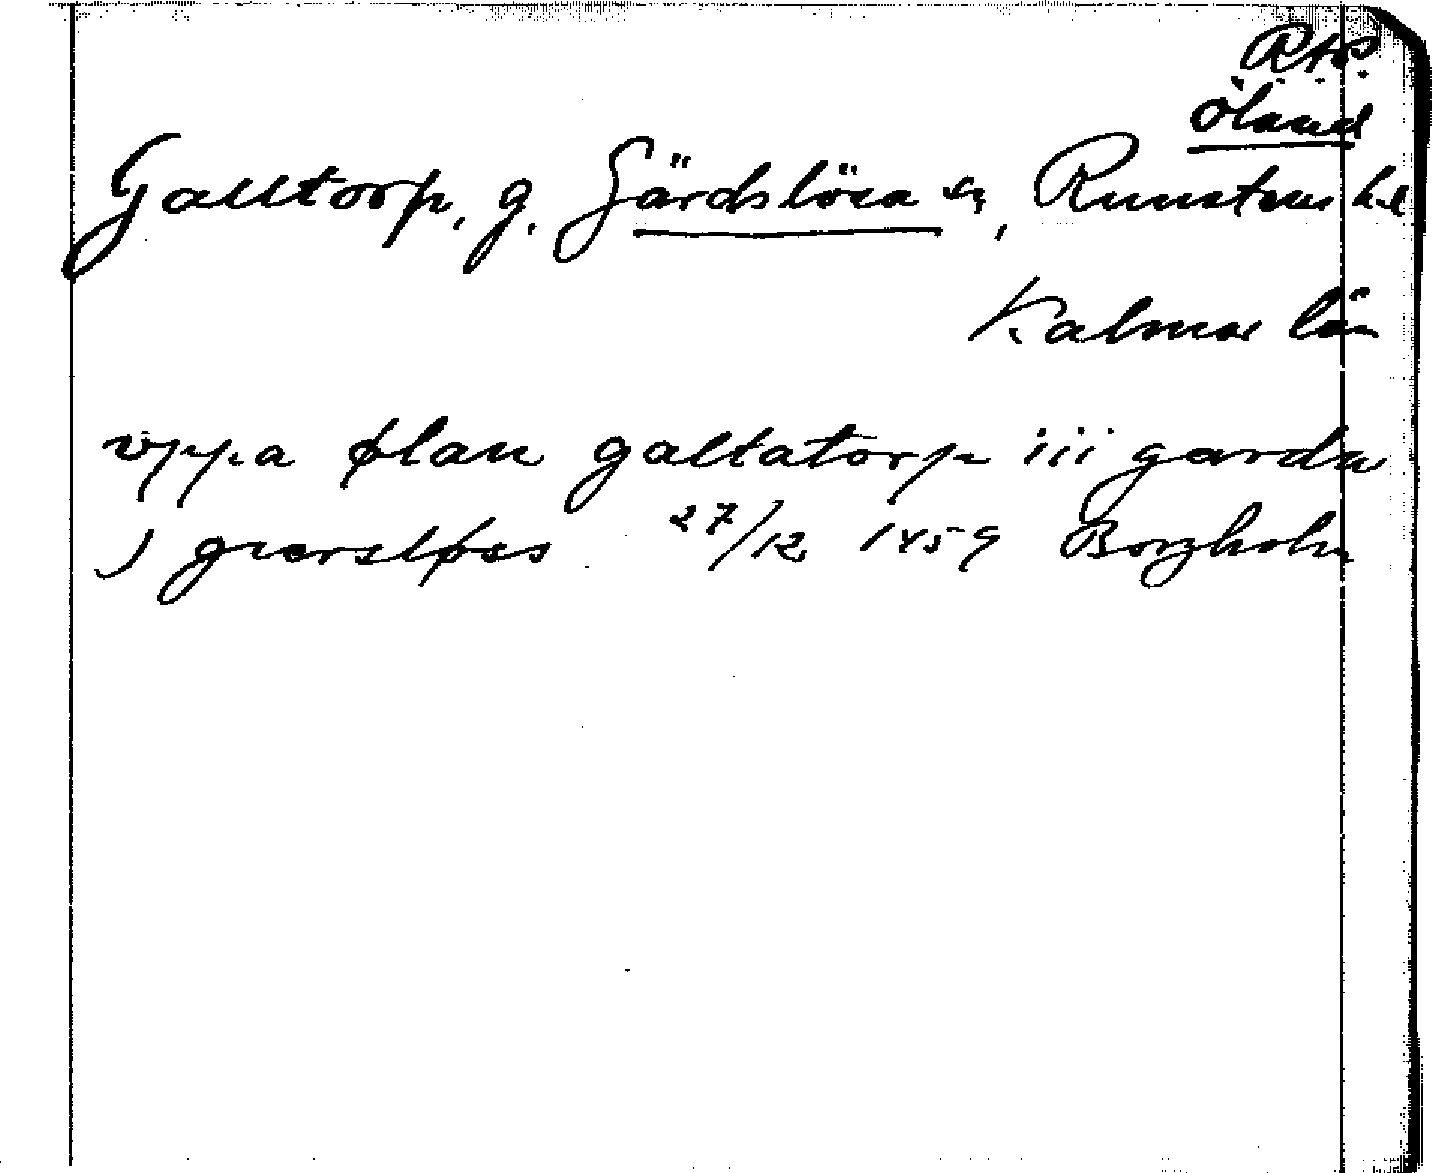 RAP.
Öland
Galltorp, g. Gärdslösa sn, Runstens hd
Kalmar län
vppa øland galtatorp iii garda
J gærsløsa 27/12 1459 Borgholm